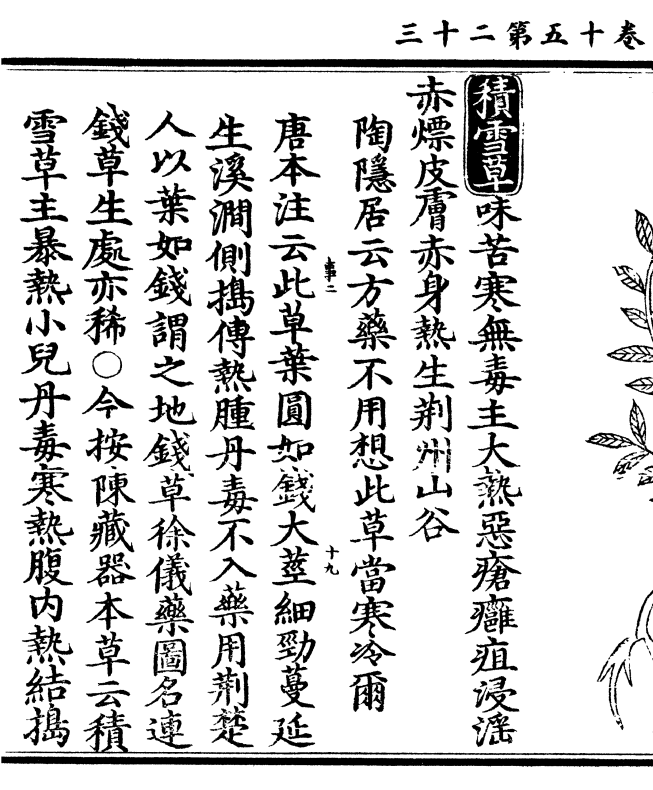 卷十五第二十三
積雪草味苦寒無毒主大熱惡瘡癰疽浸淫
赤熛皮膚赤身熱生荆州山谷
陶隱居云方藥不用想此草當寒冷爾
十九
唐本注云此草葉圓如錢大莖細勁蔓延
生溪澗側搗傅熱腫丹毒不入藥用荆楚
人以葉如錢謂之地錢草徐儀藥圖名連
錢草生處亦稀○今按陳藏器本草云積
雪草主暴熱小兒丹毒寒熱腹内熱結搗